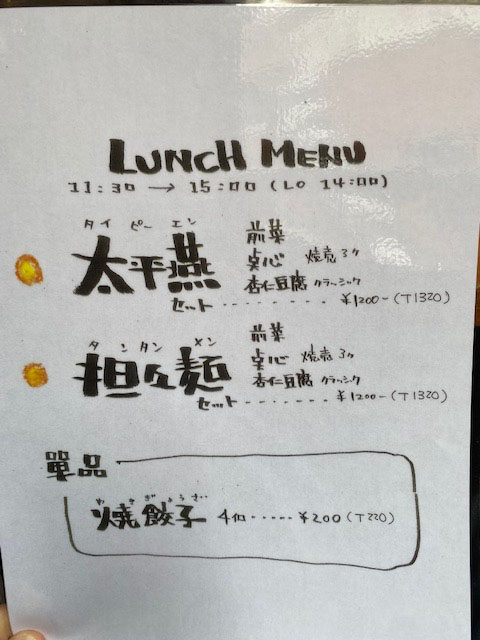 LUNCH MENU
11:30 → 15:00 (LO 14:00)
タイピーエン
太平燕
前菜
点心 焼売3ヶ
杏仁豆腐 クラッシック
セット・・・・・・・・・・¥1200-(T1320)
タンタンメン
担々麺
前菜
点心 焼売3ヶ
杏仁豆腐 クラッシック
セット・・・・・・・・・・¥1200-(T1320)
單品
やきぎょうざ
焼餃子 4個・・・・・¥200(T220)